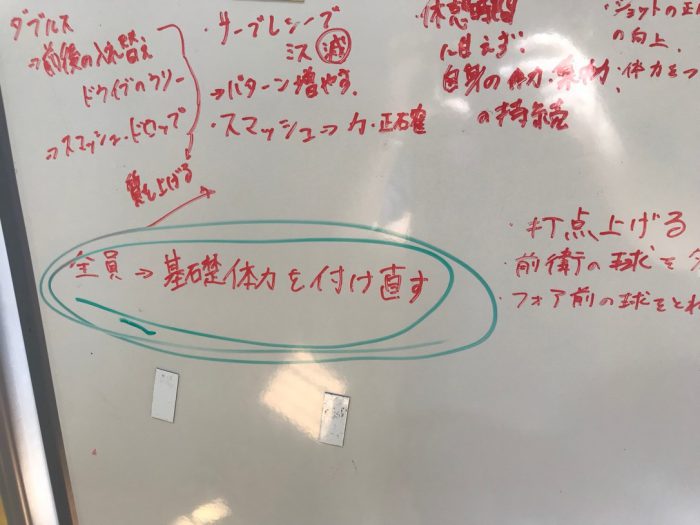 ダブルス
⇒前後の入れ替え
ドライブのラリー
⇒スマッシュ・ドロップ
質を上げる
・サーブレシーブ
ミス 減
⇒パターン増やす。
・スマッシュ⇒力・正確
休憩時間
自身の体力
の持続
・ショットの正
の向上.
・体力をつ
全員⇒基礎体力を付け直す
・打点上げる
・前衛の球を
・フォア前の球をとれ